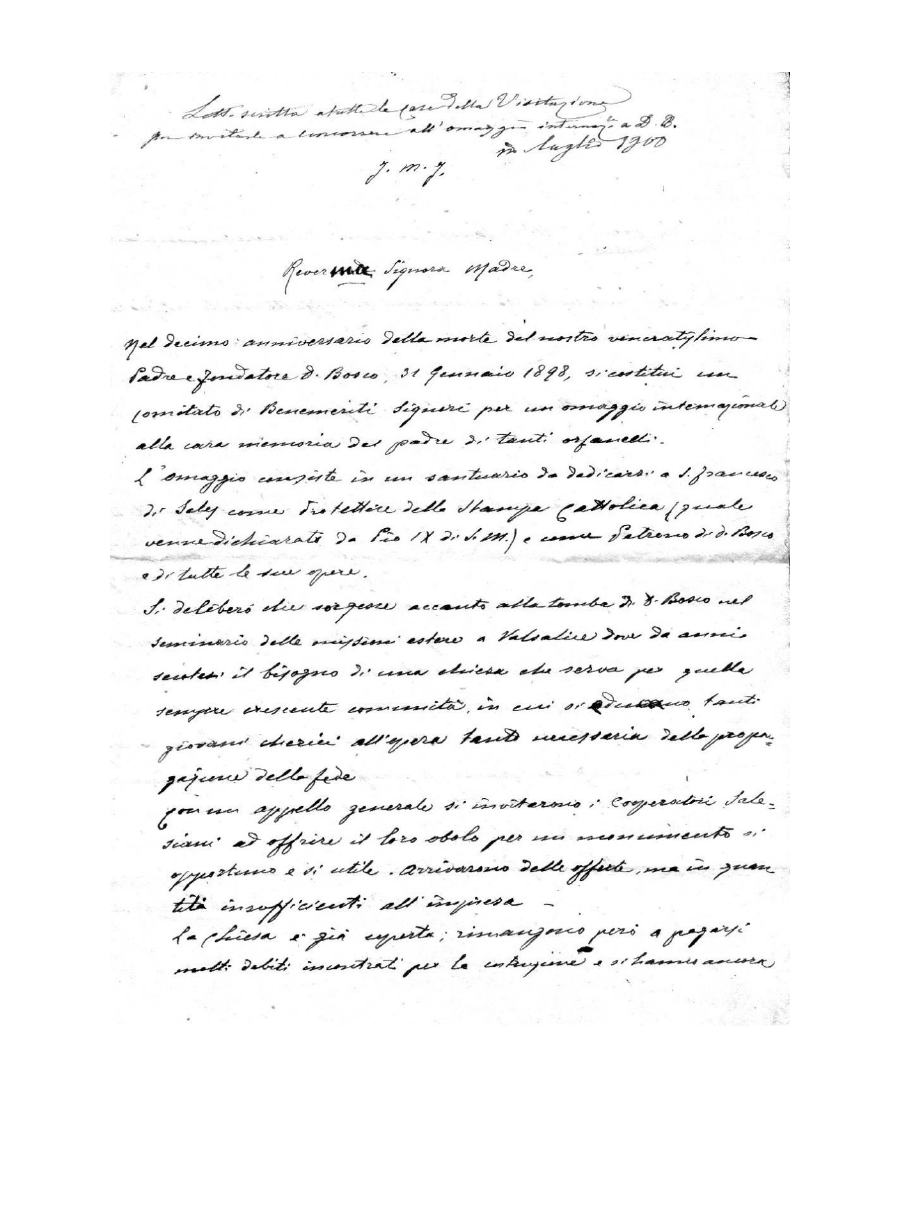 Lett. scritta a tutte le Case della Visitazione
per invitarle a concorrere all'omaggio internaz.le a D. B.
in luglio 1900
J. M. J.
Rever.ma Signora Madre,
Nel decimo anniversario della morte del nostro veneratissimo
Padre e fondatore D. Bosco, 31 Gennaio 1898, si costituì un
comitato di Benemeriti Signori per un omaggio internazionale
alla cara memoria del padre di tanti orfanelli.
L'omaggio consiste in un santuario da dedicarsi a S. Francesco
di Sales come Protettore della Stampa Cattolica (quale
venne dichiarato da Pio IX di S. M.) e come Patrono di D. Bosco
e di tutte le sue opere.
Si deliberò che sorgesse accanto alla tomba di D. Bosco nel
seminario delle missioni estere a Valsalice dove da anni
sentesi il bisogno di una chiesa che serva per quella
sempre crescente comunità, in cui si educano tanti
giovani chierici all'opera tanto necessaria della propa=
gazione della fede
Con un appello generale si invitarono i Cooperatori Sale=
siani ad offrire il loro obolo per un monumento sì
opportuno e sì utile. Arrivarono delle offerte, ma in quan
tità insufficienti all'impresa –
La Chiesa è già coperta; rimangono però a pagarsi
molti debiti incontrati per la costruzione e si hanno ancora